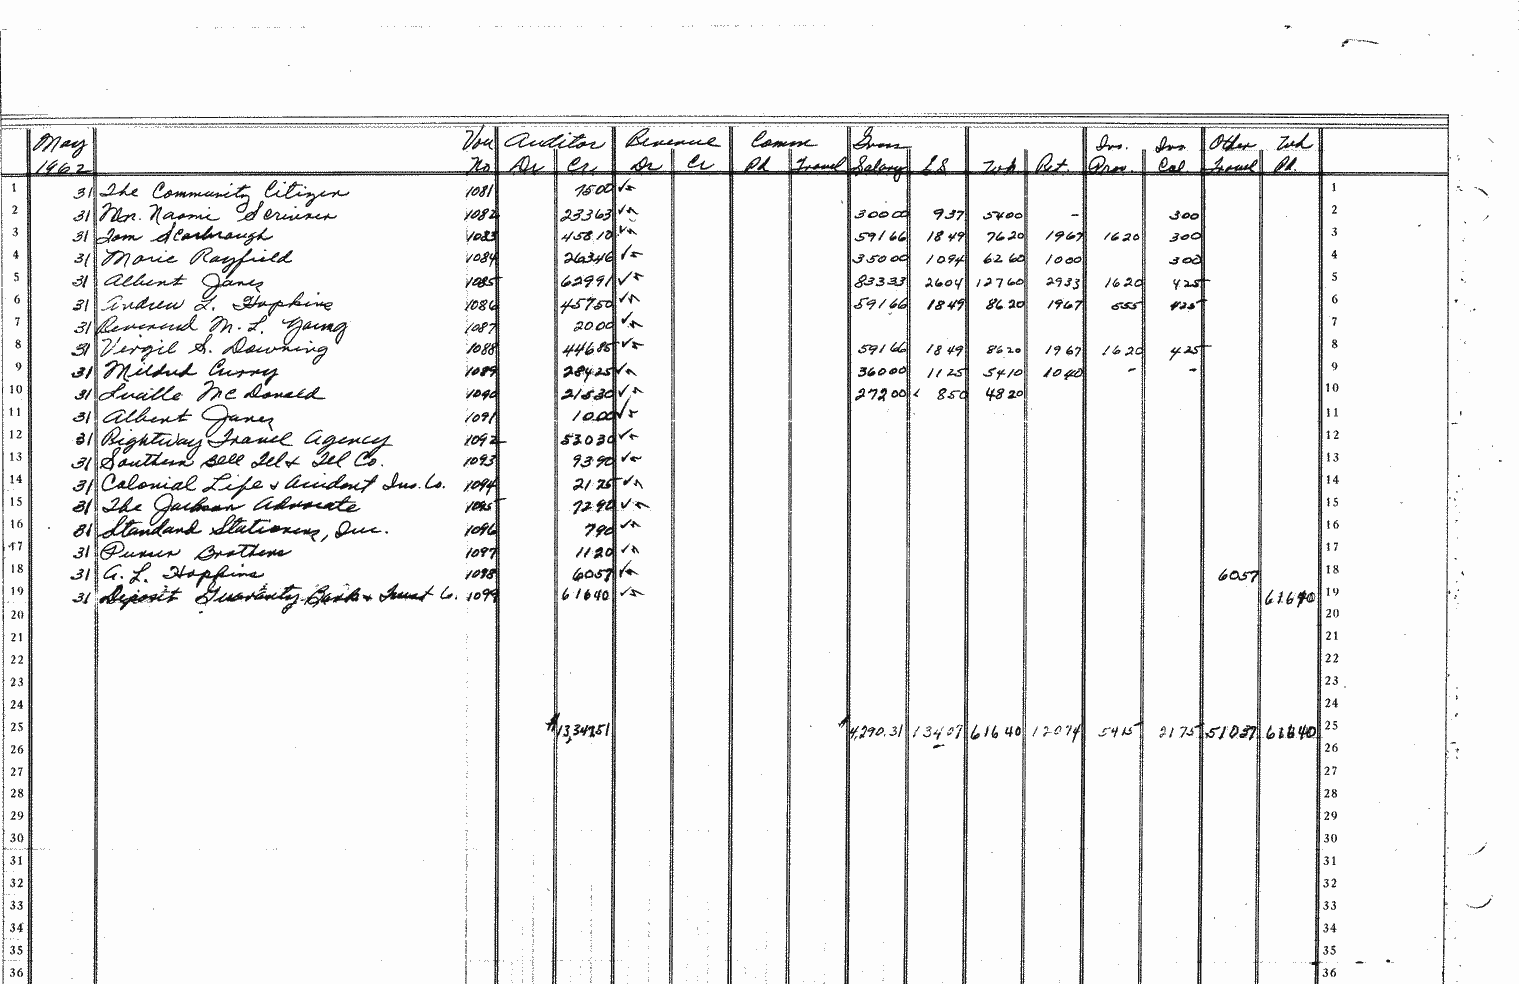 May Vou Auditor Revenue Comm Gross Ins. Ins. Other Twh
1962 No Dr Cr. Dr Cr Pd Travel Salary S.S. Twh Ret. Prov. Col Travel Pd.
1 31 The Community Citizen 1081 7500 ✓ 1
2 31 Mrs. Naomi Scrivner 1082 23363 ✓ 30000 937 5400 - 300 2
3 31 Tom Scarbrough 1083 45810 ✓ 59166 1849 7620 1967 1620 300 3
4 31 Marie Rayfield 1084 26346 ✓ 35000 1094 6260 1000 300 4
5 31 Albert Jones 1085 62991 ✓ 83333 2604 12760 2933 1620 425 5
6 31 Andrew L. Hopkins 1086 45750 ✓ 59166 1849 8620 1967 555 425 6
7 31 Reverend M. L. Young 1087 2000 ✓ 7
8 31 Virgil S. Downing 1088 44685 ✓ 59166 1849 8620 1967 1620 425 8
9 31 Mildred Curry 1089 28425 ✓ 36000 1125 5410 1040 - - 9
10 31 Lucille McDonald 1090 21530 ✓ 27200 850 4820 10
11 31 Albert Jones 1091 1000 ✓ 11
12 31 Rightway Travel Agency 1092 53030 ✓ 12
13 31 Southern Bell Tel & Tel Co. 1093 9390 ✓ 13
14 31 Colonial Life & Accident Ins. Co. 1094 2175 ✓ 14
15 31 The Jackson Advocate 1095 7290 ✓ 15
16 31 Standard Stationers, Inc. 1096 790 ✓ 16
17 31 Purser Brothers 1097 1120 ✓ 17
18 31 A. L. Hopkins 1098 6057 ✓ 6057 18
19 31 Deposit Guaranty Bank & Trust Co. 1099 61640 ✓ 61640 19
20 20
21 21
22 22
23 23
24 24
25 $ $4,290.31 13407 61640 12074 5415 2175 51037 61640 25
26 26
27 27
28 28
29 29
30 30
31 31
32 32
33 33
34 34
35 35
36 36